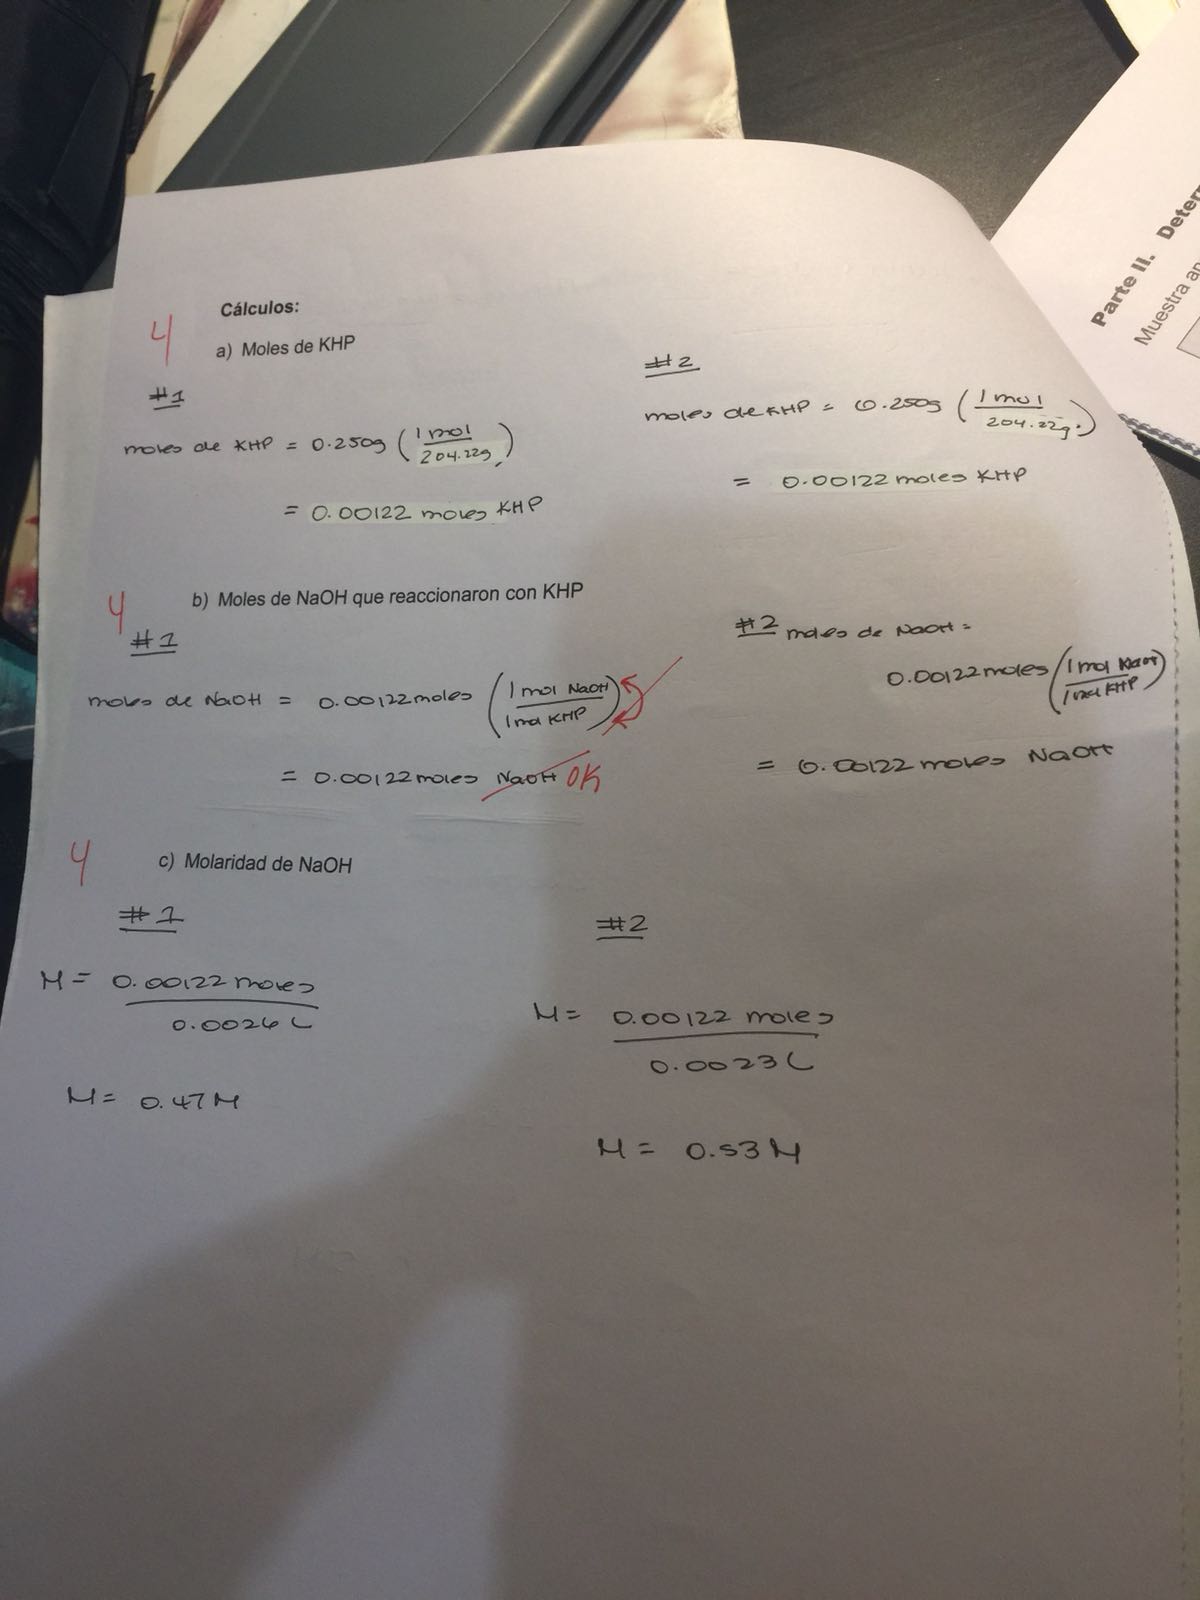 Parte II. Deter
Muestra an
Cálculos:
4
a) Moles de KHP
#1
moles de KHP = 0.250g (1 mol / 204.22g)
= 0.00122 moles KHP
#2
moles de KHP = 0.250g (1 mol / 204.22g)
= 0.00122 moles KHP
4
b) Moles de NaOH que reaccionaron con KHP
#1
moles de NaOH = 0.00122 moles (1 mol NaOH / 1 mol KHP)
= 0.00122 moles NaOH OK
#2 moles de NaOH =
0.00122 moles (1 mol NaOH / 1 mol KHP)
= 0.00122 moles NaOH
4
c) Molaridad de NaOH
#1
M = 0.00122 moles
0.0026 L
M = 0.47 M
#2
M = 0.00122 moles
0.0023 L
M = 0.53 M